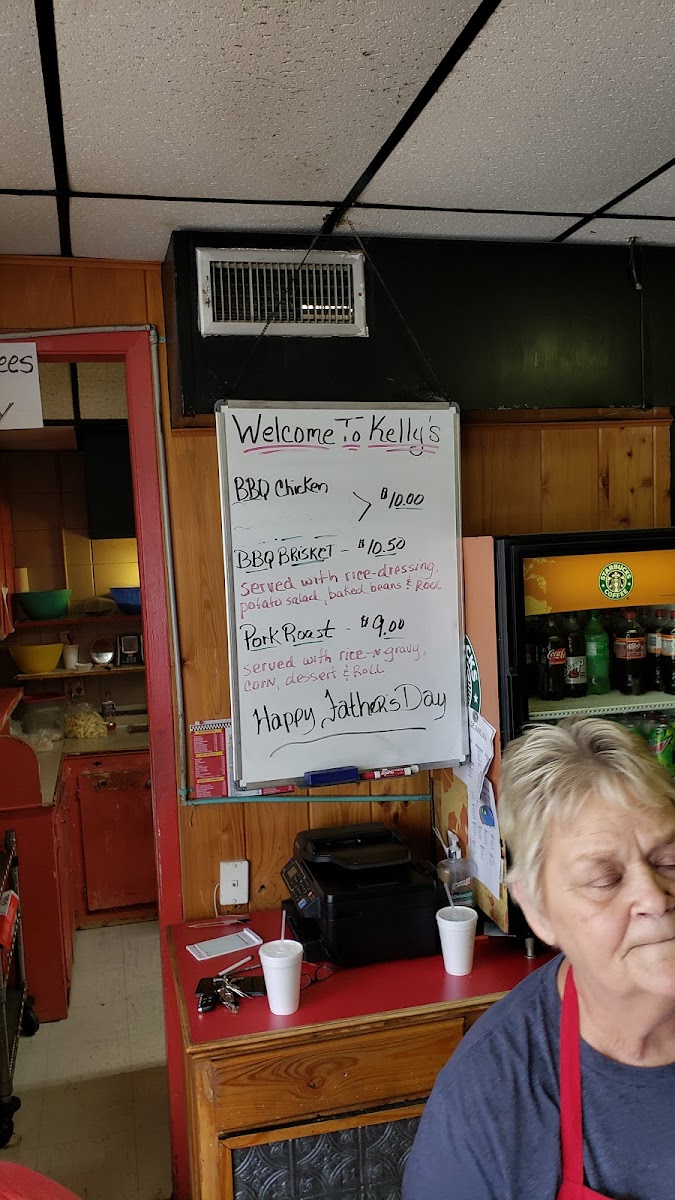 ees
y
Welcome To Kelly's
BBQ Chicken > $10.00
BBQ BRISKET - $10.50
served with rice-dressing,
potato salad, baked beans & Roll
Pork Roast - $9.00
served with rice-n-gravy,
corn, dessert & Roll
Happy Father's Day
STARBUCKS
COFFEE
EXPO